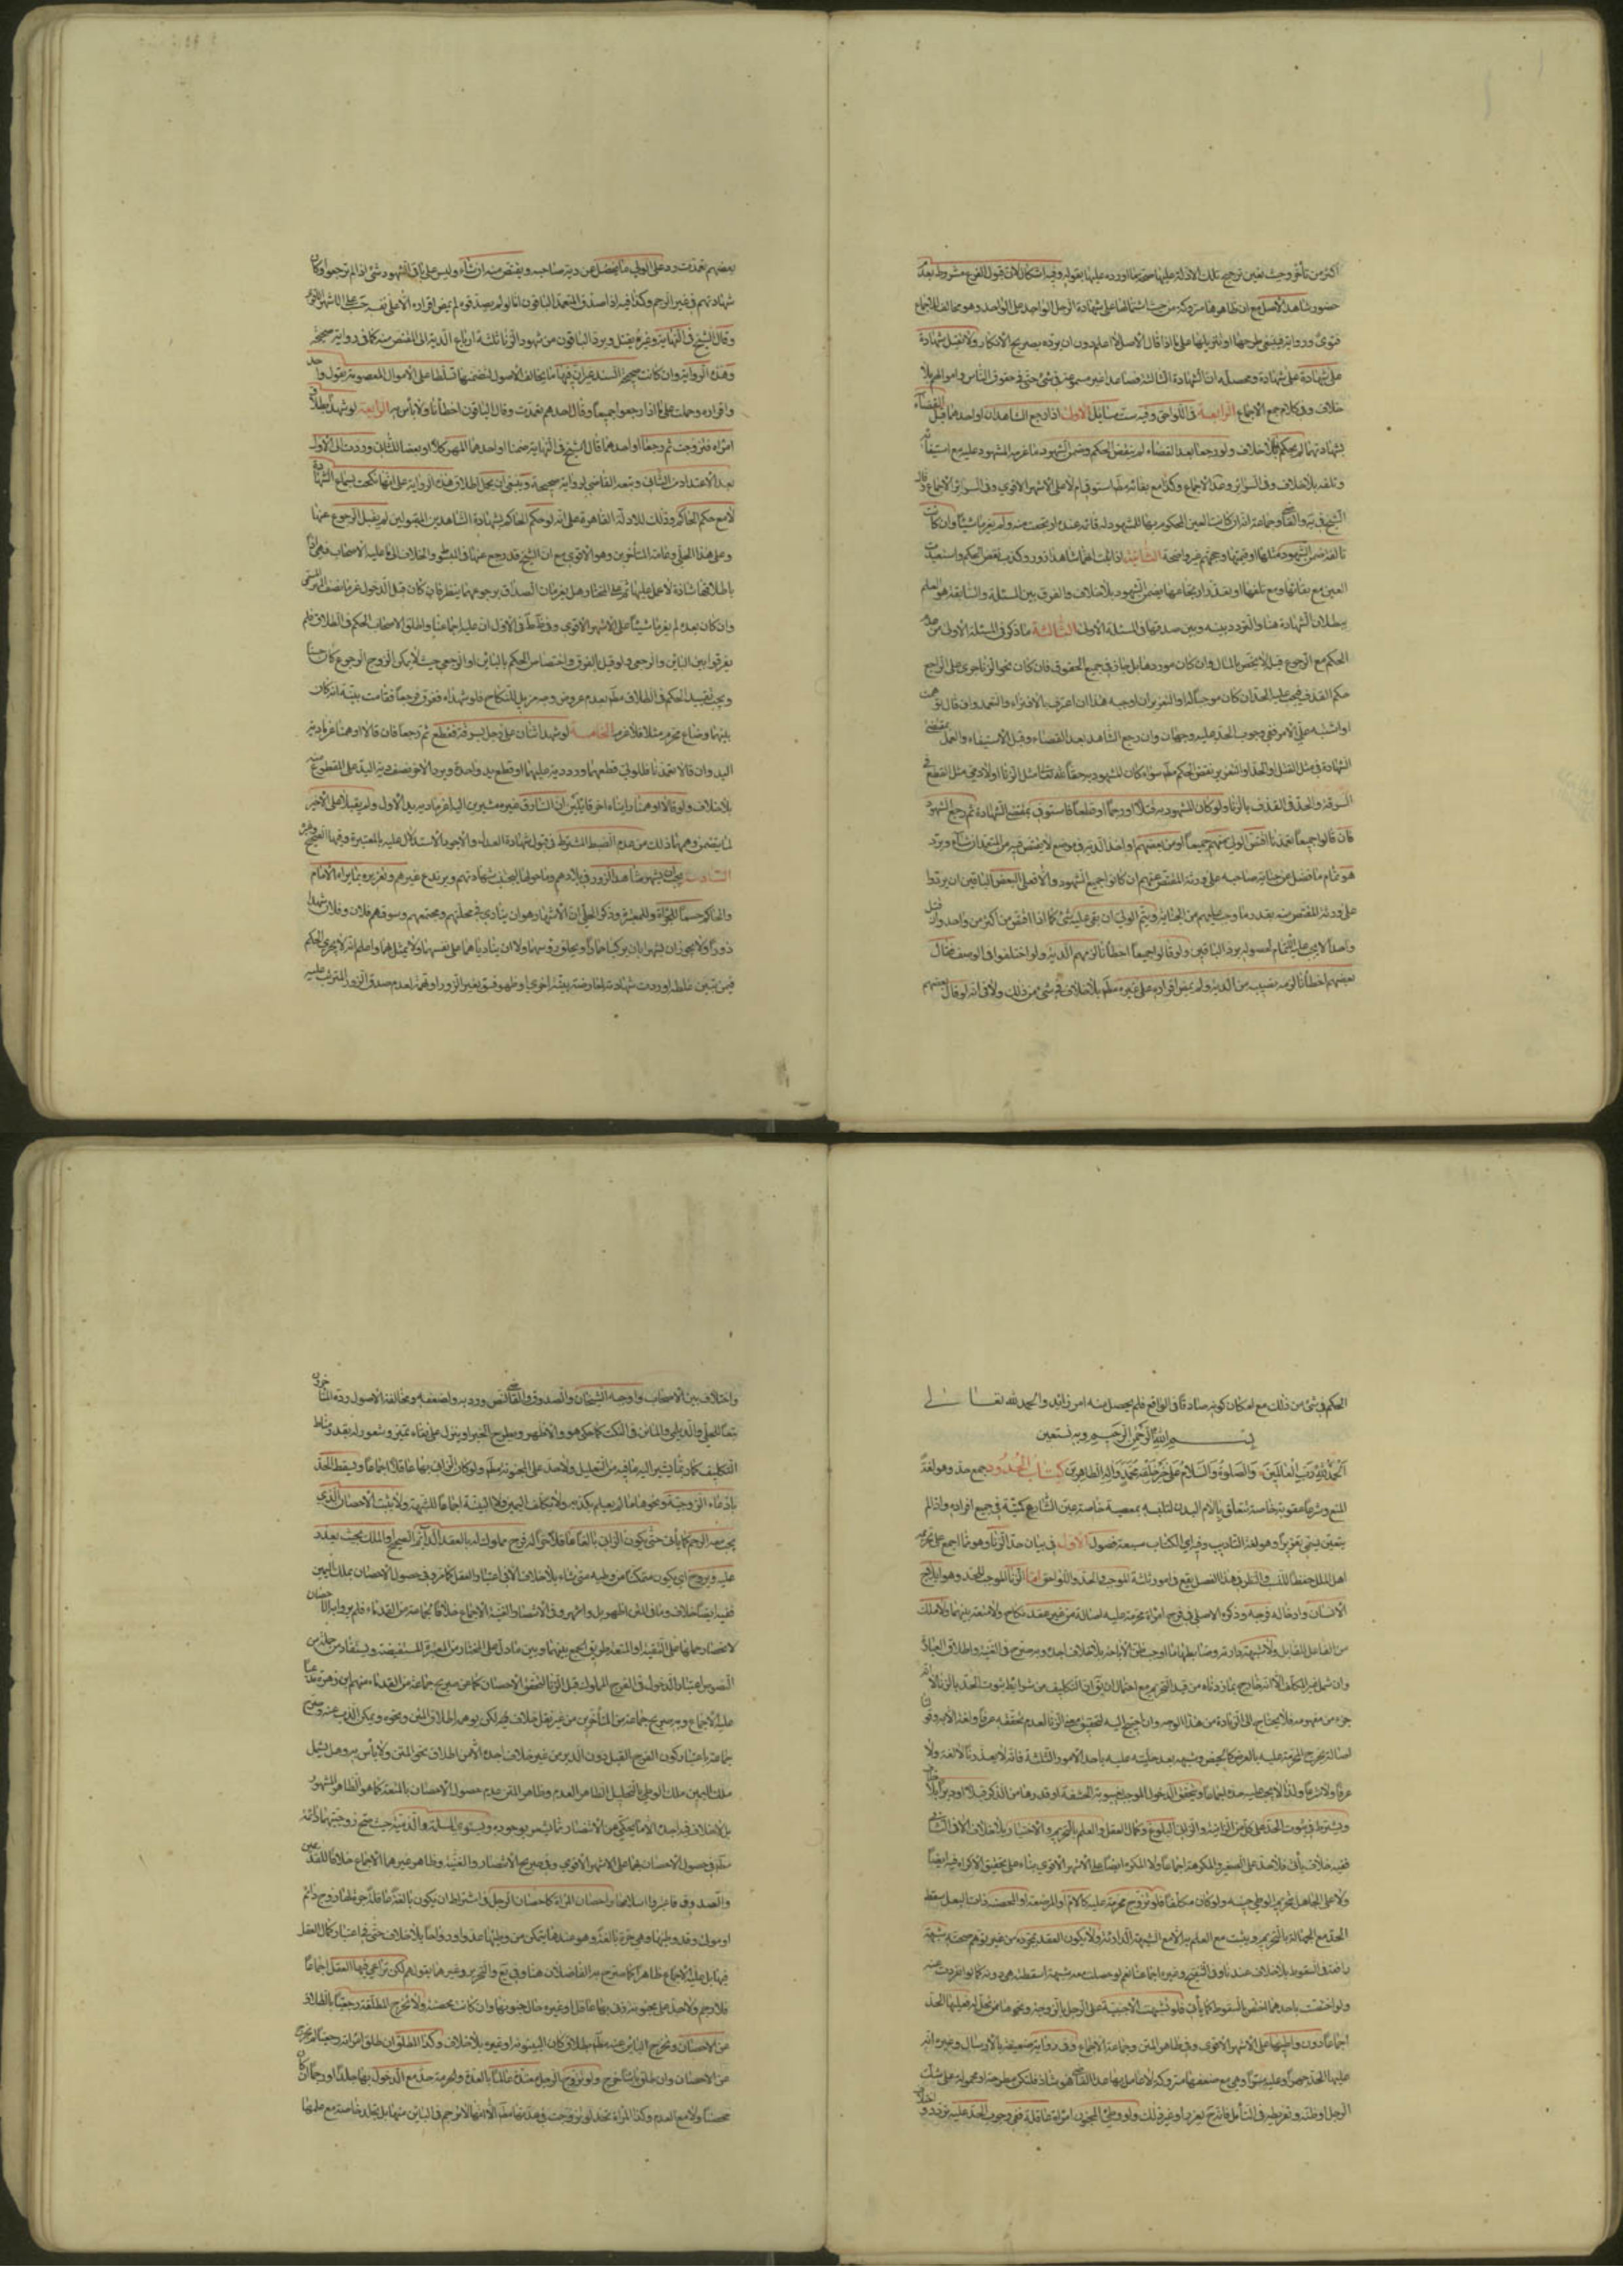 اكثر من تأخر وحيث تعين ترجيح تلك الادلة عليها
حضور شاهد الاصل مع ان ظاهرها متروكة من حيث اشتمالها على شهادة الرجل الواحد على الواحد وهو مخالف للاجماع
فتوى ورواية فينبغي طرحها او تنزيلها على ما اذا قال الاصل لا اعلم دون ان يرده بصريح الانكار ولا تقبل شهادة
على شهادة على شهادة ومحصله ان الشهادة الثالثة فصاعدا غير مسموعة في شئ حتى في حقوق الناس واموالهم بلا
خلاف وفي كلام جمع الاجماع الرابعة في اللواحق وفيه ست مسائل الاولى اذا رجع الشاهدان او احدهما قبل القضاء
بشهادتهما لم يحكم بلا خلاف ولو رجعا بعد القضاء لم ينقض الحكم وضمن الشهود ما غرمه المشهود عليه مع استيفائه
وتلفه بلا خلاف وفي السرائر وعن الاجماع وكذا مع بقائه مطلقا استوفي ام لا على الاشهر الاقوى وفي السرائر الاجماع وقال
الشيخ في ية والقاضي وجماعة انه ان كانت العين المحكوم بها للمشهود له قائمة عنده ارتجعت منه ولم يغرما شيئا وان كانت
تالفة ضمن الشهود مثلها او قيمتها وحجتهم غير واضحة الثانية اذا ثبت انهما شاهدا زور وكذب نقض الحكم واستعيدت
العين مع بقائها ومع تلفها او تعذر ارتجاعها يضمن الشهود بلا خلاف والفرق بين المسئلة والسابقة هو العلم
ببطلان الشهادة هنا والتردد بينه وبين صدقها في المسئلة الاولى الثالثة ما ذكر في المسئلة الاولى من عدم
الحكم مع الرجوع قبله لا يختص بالمال وان كان موردها بل جار في جميع الحقوق فان كان نحو الزنا جرى على الراجع
حكم القذف فيجب عليه الحد ان كان موجبا له او التعزير ان اوجبه هذا ان اعترف بالافتراء والتعمد وان قال توهمت
او اشتبه علي الامر ففي وجوب الحد عليه وجهان وان رجع الشاهد بعد القضاء وقبل الاستيفاء والعمل بمقتضى
الشهادة في مثل القتل او الحد او التعزير نقض الحكم مطلقا سواء كان المشهود به حقا لله تعالى مثل الزنا او لادمي مثل القطع في
السرقة والحد في القذف بالزنا ولو كان المشهود به قتلا او رجما او قطعا فاستوفي بمقتضى الشهادة ثم رجع الشهود
فان قالوا جميعا تعمدنا اقتص الولي منهم جميعا او من بعضهم واخذ الدية في موضع لا يقتص فيه من المتعمد ان شاء ويرد
هو تمام ما فضل عن جناية صاحبه على ورثة المقتص منهم ان كانوا جميع الشهود والا فعلى البعض الباقين ان يردوا
على ورثة المقتص منه بقدر ما وجب عليهم من الجناية ويتم الولي ان بقى عليه شئ كما اذا اقتص من اكثر من واحد وان قتل
واحدا لا يجب عليه الاتمام لحصوله برد الباقين ولو قالوا جميعا اخطأنا لزمهم الدية ولو اختلفوا في الوصف فقال
بعضهم اخطأنا لزمه نصيبه من الدية ولم يمض اقراره على غيره مطلقا بلا خلاف في شئ من ذلك ولا في انه لو قال بعضهم
بعضهم تعمدت رد على الولي ما يفضل عن دية صاحبه ويقتص منه ان شاء وليس على باقي الشهود شئ اذا لم يرجعوا وكان
شهادتهم في غير الرجم وكذا فيه اذا صدق المتعمد الباقون اما لو لم يصدقوه لم يمض اقراره الا على نفسه حسب على الاشهر الاقوى
وقال الشيخ في النهاية وغيره يقتل ويرد الباقون من شهود الزنا ثلثة ارباع الدية الى المقتص منه كما في رواية صحيحة
وهذه الرواية وان كانت صحيحة السند غير ان فيها ما يخالف الاصول لتضمنها تسلطا على الاموال المعصومة بقول واحد
واقراره وحملت على ما اذا رجعوا جميعا وقال احدهم تعمدت وقال الباقون اخطأنا ولا بأس به الرابعة لو شهدا بطلاق
امراة فتزوجت ثم رجعا او احدهما قال الشيخ في النهاية ضمنا او احدهما المهر كلا او بعضا للثاني وردت الى الاول
بعد الاعتداد من الثاني وتبعه القاضي لرواية صحيحة وينبغي ان يحمل اطلاق هذه الرواية على انها نكحت بسماع الشهادة
لا مع حكم الحاكم وذلك للادلة القاهرة على انه لو حكم الحاكم بشهادة الشاهدين المقبولين لم يقبل الرجوع عنها
وعلى هذا الحلي وعامة المتأخرين وهو الاقوى مع ان الشيخ قد رجع عنها في المبسوط والخلاف الى ما عليه الاصحاب فهي اذا
باطلاقها شاذة لا عمل عليها ثم على المختار هل يغرمان الصداق برجوعهما ينظر فان كان قبل الدخول غرما نصف المهر المسمى
وان كان بعده لم يغرما شيئا على الاشهر الاقوى وفي ظاهر ط في الاول ان عليه اجماعنا واطلق الاصحاب الحكم في الطلاق فلم
يفرقوا بين البائن والرجعي ولو قيل بالفرق واختصاص الحكم بالبائن او الرجعي حيث لا يمكن الزوج الرجوع كان حسنا
ويجب تقييد الحكم في الطلاق مطلقا بعدم عروض وجه مزيل للنكاح فلو شهدا به ففرق فرجعا فقامت بينة انه كان
بينهما رضاع محرم مثلا فلا غرم الخامسة لو شهد اثنان على رجل بسرقة فقطع ثم رجعا فان قالا اوهمنا غرما دية
اليد وان قالا تعمدنا فللولي قطعهما ورد دية عليهما او قطع يد واحد ويرد الاخر نصف دية اليد على المقطوع منه
بلا خلاف ولو قالا اوهمنا واتيا باخر قائلين ان السارق غيره مشيرين اليه اغرما دية يد الاول ولم يقبلا على الاخير
لما يتضمن وهمهما ذلك من عدم الضبط المشترط في قبول شهادة العدل والاجود الاستدلال عليه بالمعتبرة وفيها الصحيح وغيره
السادسة يجب ان يشهر شاهد الزور في بلدهم وما حولها ليجتنب شهادتهم ويرتدع غيرهم وتعزيره بما يراه الامام
والحاكم حسما للجراة وللمعتبرة وذكر الحلي ان الاشهار هو ان ينادى في محلتهم ومجتمعهم وسوقهم فلان وفلان شهدا
زورا ولا يجوز ان يشهرا بان يركبا حمارا ويحلق رؤسهما ولا ان يناديا هما على نفسهما ولا يمثل بهما واعلم انه لا يجري الحكم
فيمن تبين غلطه او ردت شهادته لمعارضته بينة اخرى او ظهور فسق بغير الزور او تهمة لعدم صدق الزور المترتب عليه
الحكم في شئ من ذلك مع امكان كونه صادقا في الواقع فلم يحصل منه امر زائد والحمد لله تعالى
بسم الله الرحمن الرحيم وبه نستعين
الحمد لله رب العالمين والصلوة والسلام على خير خلقه محمد واله الطاهرين كتاب الحدود جمع حد وهو لغة
المنع وشرعا عقوبة خاصة تتعلق بالام البدن لتلبسه بمعصية خاصة عين الشارع كميته في جميع افراده واذا لم
يتعين يسمى تعزيرا وهو لغة التأديب وفي الكتاب سبعة فصول الاول في بيان حد الزنا وهو مما اجمع على تحريمه
اهل الملل حفظا للنسب والنظر في هذا الفصل يقع في امور ثلثة الموجب والحد واللواحق اما الزنا الموجب للحد وهو ايلاج
الانسان وادخاله فرجه وذكره الاصلي في فرج امراة محرمة عليه اصالة من غير عقد نكاح ولا متعة بينهما ولا ملك
من الفاعل للقابل ولا شبهة دارئة وضابطها ما اوجب ظن الاباحة بلا خلاف اجده وبه صرح في الغنية واطلاق العبارة
وان شمل غير المكلف الا انه خارج بما زدناه من قيد التحريم مع احتمال ان يق ان التكليف من شرائط ثبوت الحد بالزنا لا انه
جزء من مفهومه فلا يحتاج الى الزيادة من هذا الوجه وان احتيج اليه لتحقيق معنى الزنا لعدم تحققه عرفا ولغة الا به وقولنا
اصالة يخرج المحرمة عليه بالعرض كالحيض وشبهه بعد حليته عليه باحد الامور الثلثة فانه لا يعد زنا لا لغة ولا
عرفا ولا شرعا ولذا لا يجب عليه حده اجماعا ويتحقق الدخول الموجب بغيبوبة الحشفة او قدرها من الذكر قبلا او دبرا بلا خلاف
ويشترط في ثبوت الحد على كل من الزانية والزاني البلوغ وكمال العقل والعلم بالتحريم والاختيار بلا خلاف الا في الثاني
ففيه خلاف يأتي فلا حد على الصغير والمكرهة اجماعا ولا المكره ايضا على الاشهر الاقوى بناء على تحقق الاكراه فيه ايضا
ولا على الجاهل بتحريم الوطي حينه ولو كان مكلفا فلو تزوج محرمة عليه كالام او المرضعة او المحصنة ذات البعل سقط
الحد مع الجهالة بالتحريم ويثبت مع العلم به الا مع الشبهة الدارئة ولا يكون العقد بمجرده من غير توهم صحته شبهة
دافعة في السقوط بلا خلاف عندنا وفي التنقيح وغيره اجماعنا نعم لو حصلت معه شبهة اسقطته هي دونه كما لو انفردت عنه
ولو اختصت باحدهما اختص بالسقوط كما يأتي فلو تشبهت الاجنبية على الرجل بالزوجية ونحوها من تحل له فعليها الحد
اجماعا دون واطئها على الاشهر الاقوى وفي ظاهر المتن وجماعة الاجماع وفي رواية ضعيفة بالارسال وغيره انه
عليها الحد جهرا وعليه سرا وهي مع ضعفها متروكة لا عامل بها عدا القاضي وهو شاذ فلتكن مطرحة او محمولة على شك
الرجل او ظنه وتفريطه في التأمل فانه ح يعزر او غير ذلك ولو وطئ المجنون امراة عاقلة ففي وجوب الحد عليه تردد
واختلاف بين الاصحاب واوجبه الشيخان والصدوق والقاضي لنص ورد به ولضعفه ومخالفته الاصول رده المتأخرون
تبعا للحلي والديلمي والماتن في النكت كما حكي وهو الاظهر ويطرح الخبر او ينزل على بقاء تميز وشعور له بقدر مناط
التكليف كما ربما يشير اليه ما فيه من التعليل ولا حد على المجنونة مطلقا ولو كان الزاني بها عاقلا اجماعا ويسقط الحد
بادعاء الزوجية ونحوها ما لم يعلم بكذبه ولا يكلف اليمين ولا البينة اجماعا للشبهة ولا يثبت الاحصان الذي
يجب معه الرجم كما يأتي حتى يكون الزاني بالغا عاقلا حرا له فرج مملوك له بالعقد الدائم الصحيح او الملك بحيث يغدو
عليه ويروح اي يكون متمكنا من وطيه متى شاء بلا خلاف الا في اعتبار العقل كما مر وفي حصول الاحصان بملك اليمين
ففيه ايضا خلاف وما في المتن اظهر بل واشهر وفي الانتصار والغنية الاجماع خلافا لجماعة من القدماء فلم يروا به الاحصان
لاخبار حملها على التقية او المتعة طريق الجمع بينها وبين ما دل على المختار من المعتبرة المستفيضة ويستفاد من جملة من
النصوص اعتبار الدخول في الفرج المملوك قبل الزنا لتحقق الاحصان كما عن صريح جماعة من القدماء منهم ابن زهرة مدعيا
عليه الاجماع وبه صرح جماعة من المتأخرين من غير نقل خلاف فيه لكن يوهم اطلاق المتن ونحوه ويمكن الذب عنه وصرح
جماعة باعتبار كون الفرج القبل دون الدبر من غير خلاف اجده الا من اطلاق نحو المتن ولا بأس به وهل يشمل
ملك اليمين ملك الوطي بالتحليل الظاهر العدم وظاهر المتن عدم حصول الاحصان بالمتعة كما هو الظاهر المشهور
بل لا خلاف فيه اجده الا ما يحكى عن الانتصار مما يشعر بوجوده ويستوي المسلمة والذمية حيث صح زوجيتهما دائمة
مطلقا في حصول الاحصان بهما على الاشهر الاقوى وفي صريح الانتصار والغنية وظاهر غيرهما الاجماع خلافا للقديمين
والصدوق فاعتبروا اسلامها واحصان المراة كاحصان الرجل في اشتراط ان يكون بالغة عاقلة حرة لها زوج دائم
او مولى وقد وطئها وهي حرة بالغة وهو عندها يتمكن من وطيها غدوا ورواحا بلا خلاف حتى في اعتبار كمال العقل
فيها بل عليه الاجماع ظاهرا كما صرح به الفاضلان هنا وفي يع والتحرير وغيرهما بقولهم لكن تراعى فيها العقل اجماعا
فلا رجم ولا حد على مجنونة زنى بها عاقل او غيره حال جنونها وان كانت محصنة ولا تخرج المطلقة رجعيا بالطلاق
عن الاحصان وتخرج البائن عنه مطلقا بطلاق كان البينونة او غيره بلا خلاف وكذا المطلق ان طلق امراته رجعيا لم يخرج
عن الاحصان وان طلق بائنا خرج ولو تزوج الرجل معتدة عالما بالعدة والحرمة حد مع الدخول بها جلدا او رجما ان كان
محصنا ولا مع العدم وكذا المراة تحد لو تزوجت في عدتها مطلقا الا انها لا ترجم في البائن منها بل تجلد خاصة مع علمها